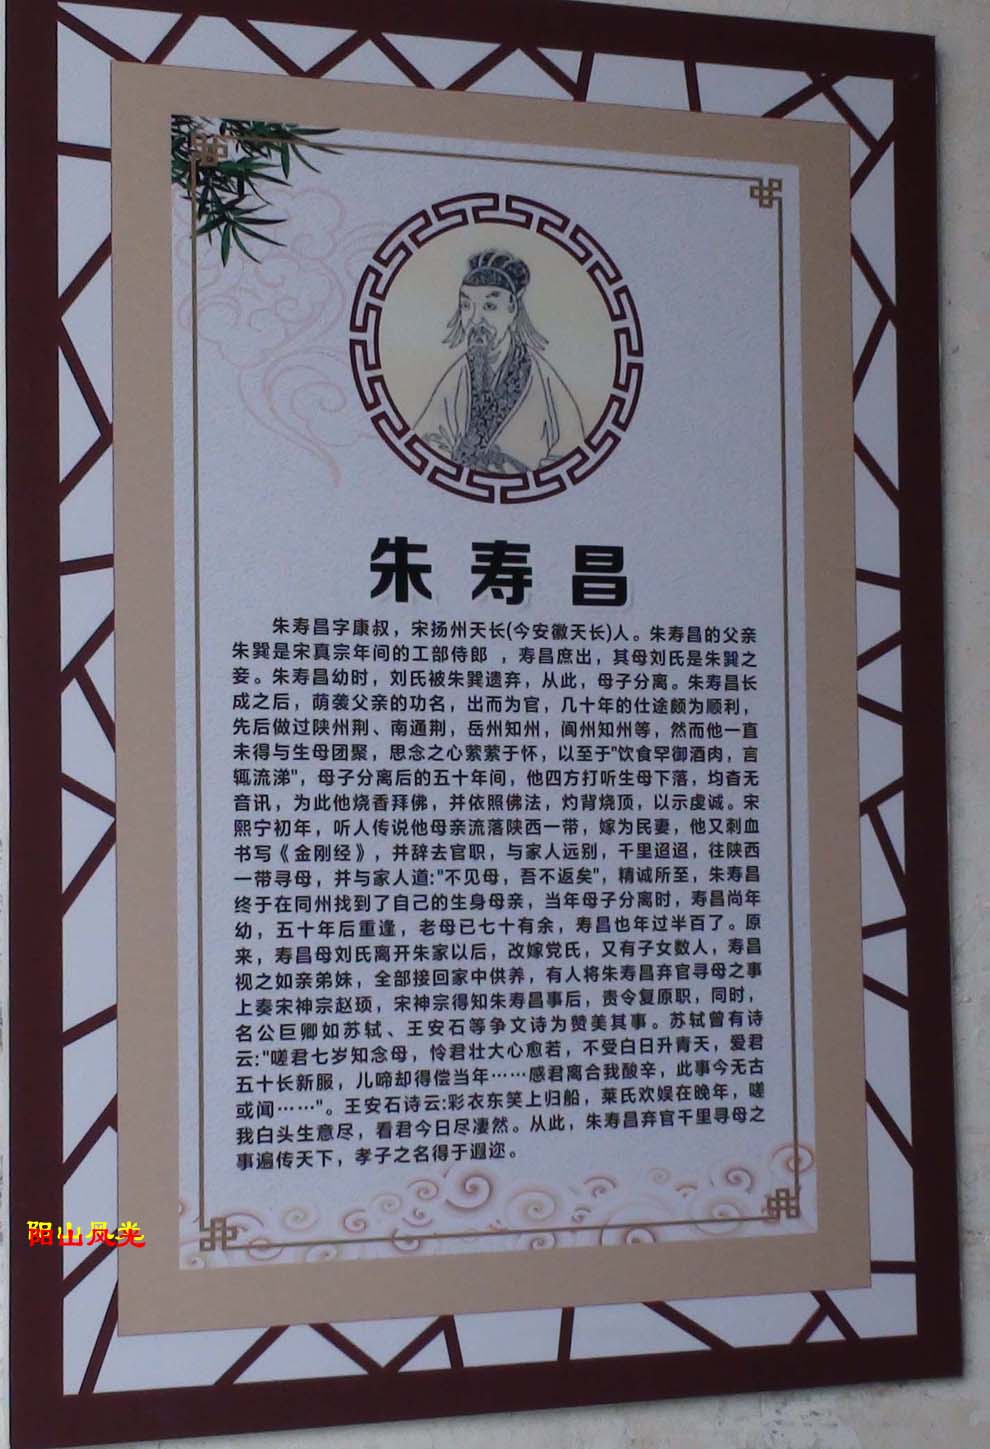 朱寿昌
朱寿昌字康叔，宋扬州天长(今安徽天长)人。朱寿昌的父亲
朱巽是宋真宗年间的工部侍郎 ，寿昌庶出，其母刘氏是朱巽之
妾。朱寿昌幼时，刘氏被朱巽遗弃，从此，母子分离。朱寿昌长
成之后，荫袭父亲的功名，出而为官，几十年的仕途颇为顺利，
先后做过陕州荆、南通荆，岳州知州，阆州知州等，然而他一直
未得与生母团聚，思念之心萦萦于怀，以至于"饮食罕御酒肉，言
辄流涕"，母子分离后的五十年间，他四方打听生母下落，均杳无
音讯，为此他烧香拜佛，并依照佛法，灼背烧顶，以示虔诚。宋
熙宁初年，听人传说他母亲流落陕西一带，嫁为民妻，他又刺血
书写《金刚经》，并辞去官职，与家人远别，千里迢迢，往陕西
一带寻母，并与家人道:"不见母，吾不返矣"，精诚所至，朱寿昌
终于在同州找到了自己的生身母亲，当年母子分离时，寿昌尚年
幼，五十年后重逢，老母已七十有余，寿昌也年过半百了。原
来，寿昌母刘氏离开朱家以后，改嫁党氏，又有子女数人，寿昌
视之如亲弟妹，全部接回家中供养，有人将朱寿昌弃官寻母之事
上奏宋神宗赵顼，宋神宗得知朱寿昌事后，责令复原职，同时，
名公巨卿如苏轼、王安石等争文诗为赞美其事。苏轼曾有诗
云:"嗟君七岁知念母，怜君壮大心愈若，不受白日升青天，爱君
五十长新服，儿啼却得偿当年……感君离合我酸辛，此事今无古
或闻……"。王安石诗云:彩衣东笑上归船，莱氏欢娱在晚年，嗟
我白头生意尽，看君今日尽凄然。从此，朱寿昌弃官千里寻母之
事遍传天下，孝子之名得于遐迩。
阳山风光